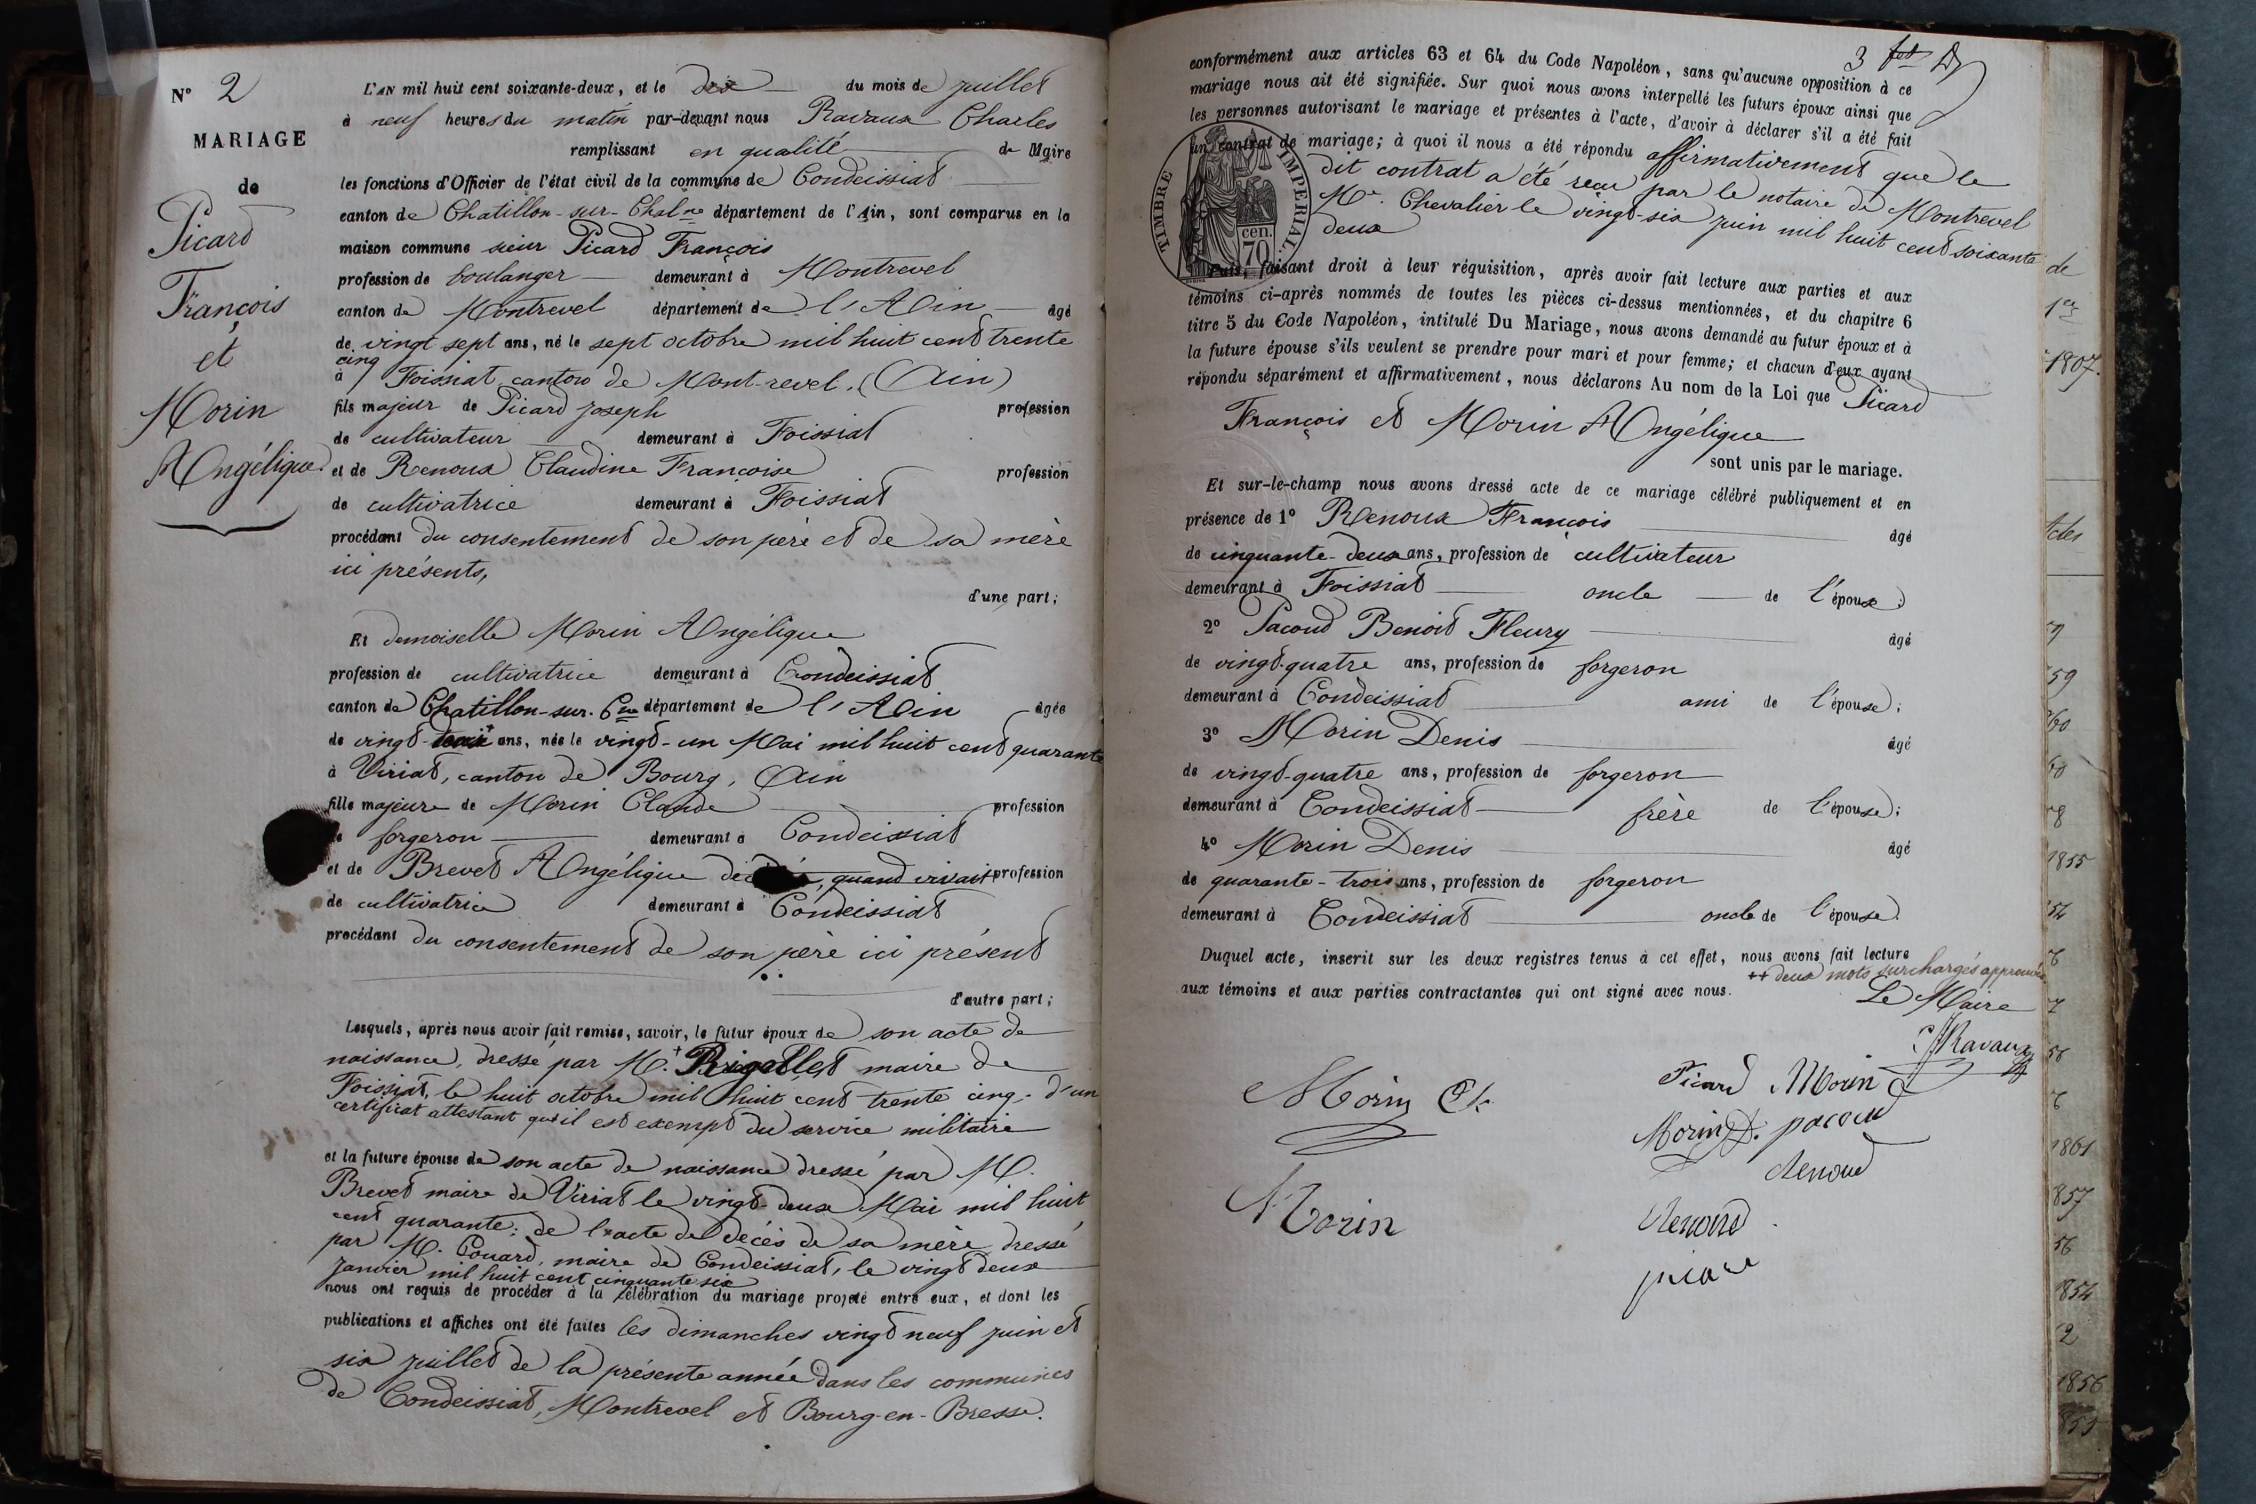 N° 2
MARIAGE
de
Picard
François
et
Morin
Angélique
L'AN mil huit cent soixante-deux, et le dix du mois de juillet
à neuf heures du matin par-devant nous Ravaux Charles
remplissant en qualité de Maire
les fonctions d'Officier de l'état civil de la commune de Condeissiat
canton de Chatillon-sur-Chalne département de l'Ain, sont comparus en la
maison commune sieur Picard François
profession de boulanger demeurant à Montrevel
canton de Montrevel département de l'Ain âgé
de vingt sept ans, né le sept octobre mil huit cent trente
cinq
à Foissiat canton de Mont-revel. (Ain)
fils majeur de Picard joseph profession
de cultivateur demeurant à Foissiat
et de Renoux Claudine Françoise profession
de cultivatrice demeurant à Foissiat
procédant du consentement de son père et de sa mère
ici présents,
d'une part;
Et demoiselle Morin Angélique
profession de cultivatrice demeurant à Condeissiat
canton de Chatillon-sur-Cne département de l'Ain âgée
de vingt- ans, née le vingt-un Mai mil huit cent quarante
à Viriat, canton de Bourg, Ain
fille majeure de Morin Claude profession
de forgeron demeurant à Condeissiat
et de Brevet Angélique décédée, quand vivait profession
de cultivatrice demeurant à Condeissiat
procédant du consentement de son père ici présent
d'autre part;
Lesquels, après nous avoir fait remise, savoir, le futur époux de son acte de
naissance, dressé par M. + Rigollet maire de
Foissiat, le huit octobre mil huit cent trente cinq. d'un
certificat attestant qu'il est exempt du service militaire
et la future épouse de son acte de naissance dressé par M.
Brevet maire de Viriat le vingt-deux Mai mil huit
cent quarante: de l'acte de décès de sa mère dressé
par M. Gouard, maire de Condeissiat, le vingt deux
janvier mil huit cent cinquante six
nous ont requis de procéder à la célébration du mariage projeté entre eux, et dont les
publications et affiches ont été faites les dimanches vingt neuf juin et
six juillet de la présente année dans les communes
de Condeissiat, Montrevel et Bourg-en-Bresse.
3
conformément aux articles 63 et 64 du Code Napoléon, sans qu'aucune opposition à ce
mariage nous ait été signifiée. Sur quoi nous avons interpellé les futurs époux ainsi que
les personnes autorisant le mariage et présentes à l'acte, d'avoir à déclarer s'il a été fait
un contrat de mariage; à quoi il nous a été répondu affirmativement que le
dit contrat a été reçu par le notaire de Montrevel
Me. Chevalier le vingt-six juin mil huit cent soixante
deux
TIMBRE IMPERIAL
70 cen.
Puis, faisant droit à leur réquisition, après avoir fait lecture aux parties et aux
témoins ci-après nommés de toutes les pièces ci-dessus mentionnées, et du chapitre 6
titre 5 du Code Napoléon, intitulé Du Mariage, nous avons demandé au futur époux et à
la future épouse s'ils veulent se prendre pour mari et pour femme; et chacun d'eux ayant
répondu séparément et affirmativement, nous déclarons Au nom de la Loi que Picard
François et Morin Angélique
sont unis par le mariage.
Et sur-le-champ nous avons dressé acte de ce mariage célébré publiquement et en
présence de 1° Renoux François âgé
de cinquante-deux ans, profession de cultivateur
demeurant à Foissiat oncle de l'époux;
2° Pacoud Benoit Fleury âgé
de vingt-quatre ans, profession de forgeron
demeurant à Condeissiat ami de l'épouse;
3° Morin Denis âgé
de vingt-quatre ans, profession de forgeron
demeurant à Condeissiat frère de l'épouse;
4° Morin Denis âgé
de quarante-trois ans, profession de forgeron
demeurant à Condeissiat oncle de l'épouse.
Duquel acte, inscrit sur les deux registres tenus à cet effet, nous avons fait lecture
++ deux mots surchargés approuvés
aux témoins et aux parties contractantes qui ont signé avec nous.
Le Maire
C Ravaux
Picard Morin
Morin Ck
Morin D. pacoud
Renoud
Morin
Renoud
picard
de
1er
1807.
Actes
59
1855
1861
857
56
1854
2
1856
855